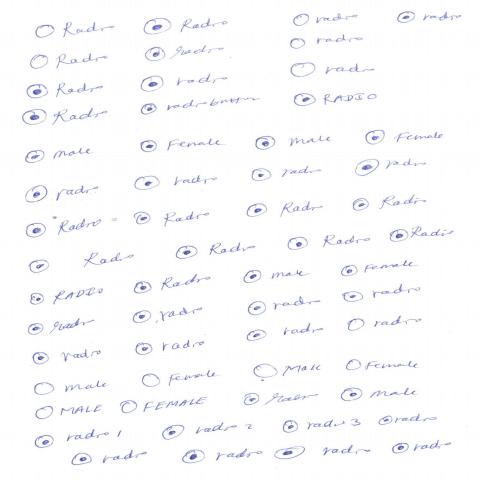 Radio Radio radio radio
Radio radio radio
Radio radio radio
Radio radio button RADIO
male Female male Female
radio radio radio radio
Radio Radio Radio Radio
Radio Radio Radio Radio
RADIO Radio male Female
radio radio radio radio
radio radio radio radio
male Female Male Female
MALE FEMALE male
radio 1 radio 2 radio 3 radio
radio radio radio radio